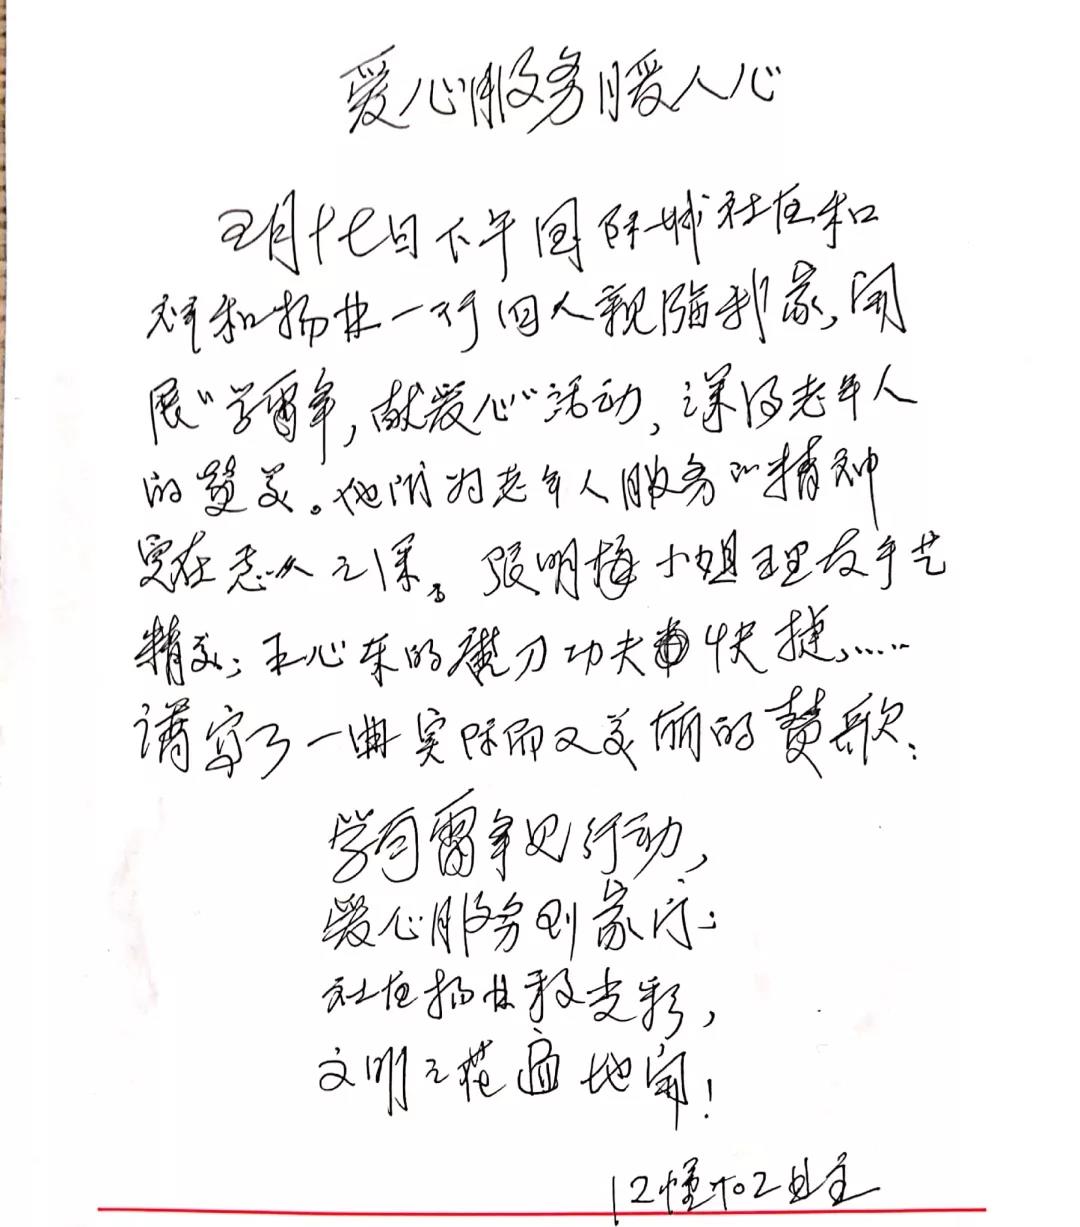 爱心服务暖人心
五月十七日下午国际城社区和
祥和物业一行四人亲临我家,开
展"学雷锋,献爱心"活动,深得老年人
的赞美。他们为老年人服务的精神
实在感人之深。张明梅小姐理发手艺
精美;王心东的磨刀功夫快捷......
谱写了一曲实际而又美丽的赞歌:
学习雷锋见行动,
爱心服务到家门;
社区物业
文明之花遍地开!
12幢702业主